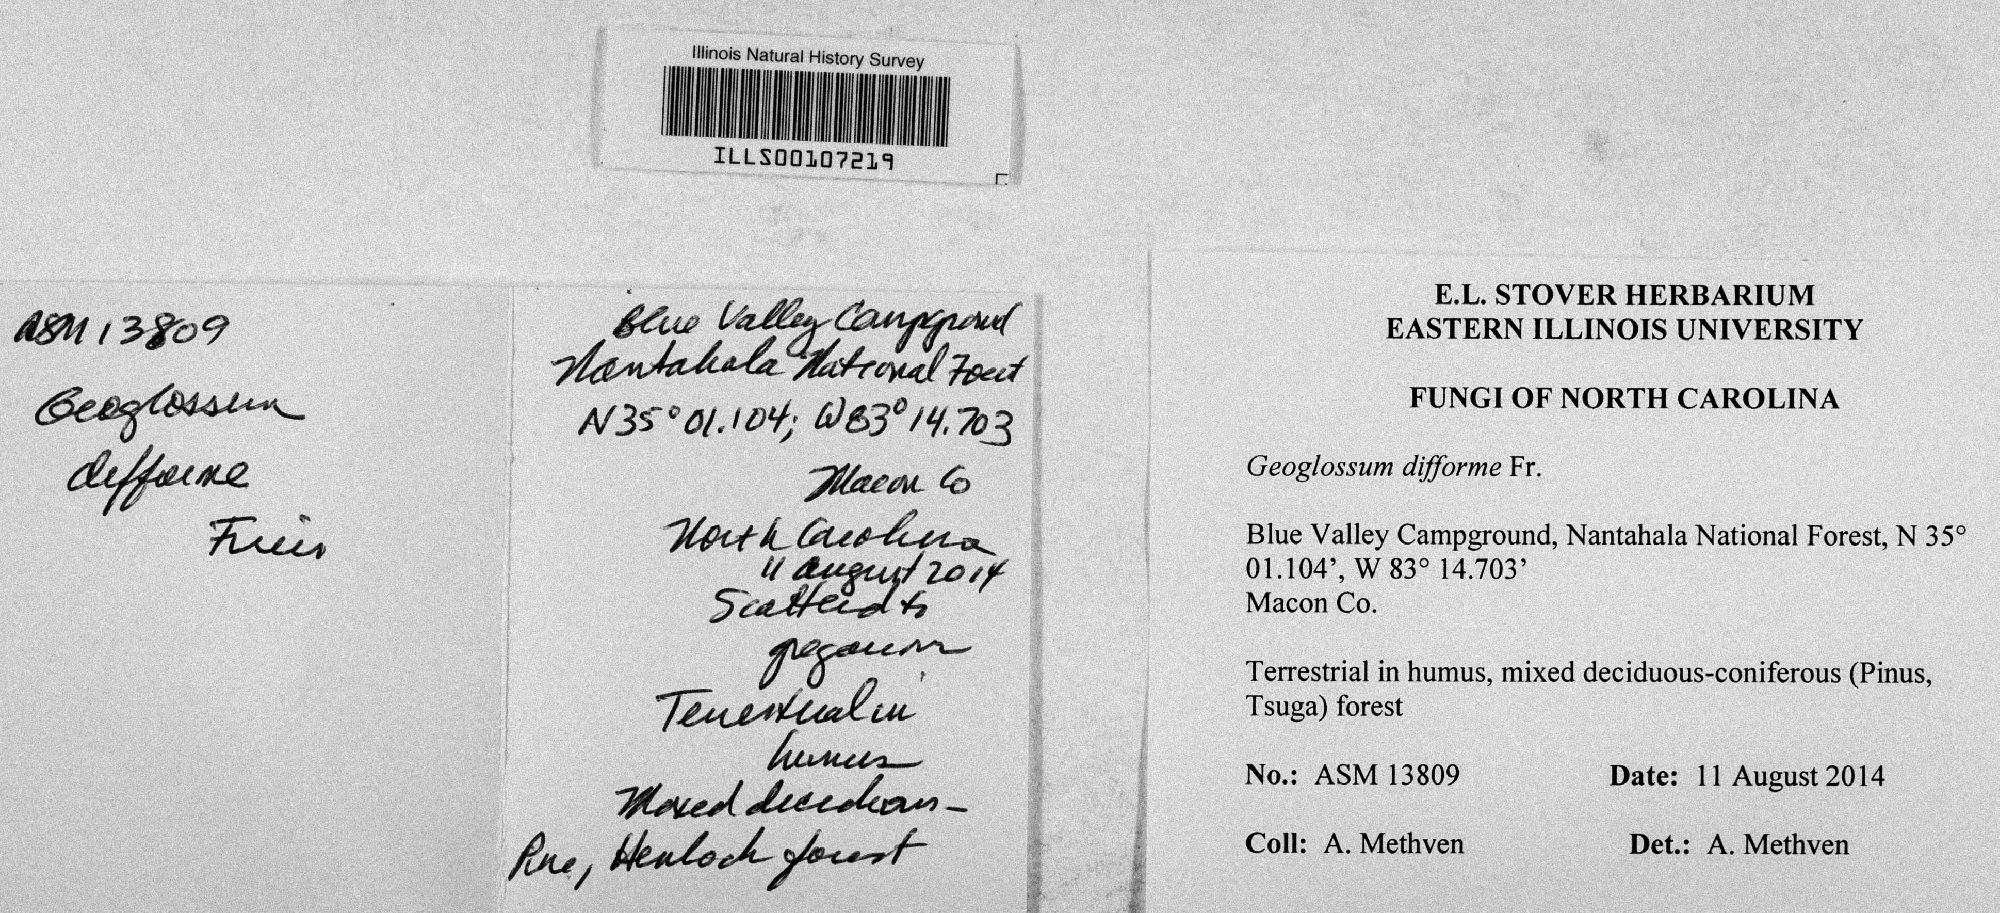 Illinois Natural History Survey
ILLS00107219
ASM 13809
Geoglossum
difforme
Fries
Blue Valley Campground
Nantahala National Forest
N35° 01.104; W83° 14.703
Macon Co
North Carolina
11 August 2014
Scattered to
gregarious
Terrestrial in
humus
Mixed deciduous-
Pine, Hemlock forest
E.L. STOVER HERBARIUM
EASTERN ILLINOIS UNIVERSITY
FUNGI OF NORTH CAROLINA
Geoglossum difforme Fr.
Blue Valley Campground, Nantahala National Forest, N 35°
01.104’, W 83° 14.703’
Macon Co.
Terrestrial in humus, mixed deciduous-coniferous (Pinus,
Tsuga) forest
No.: ASM 13809 Date: 11 August 2014
Coll: A. Methven Det.: A. Methven